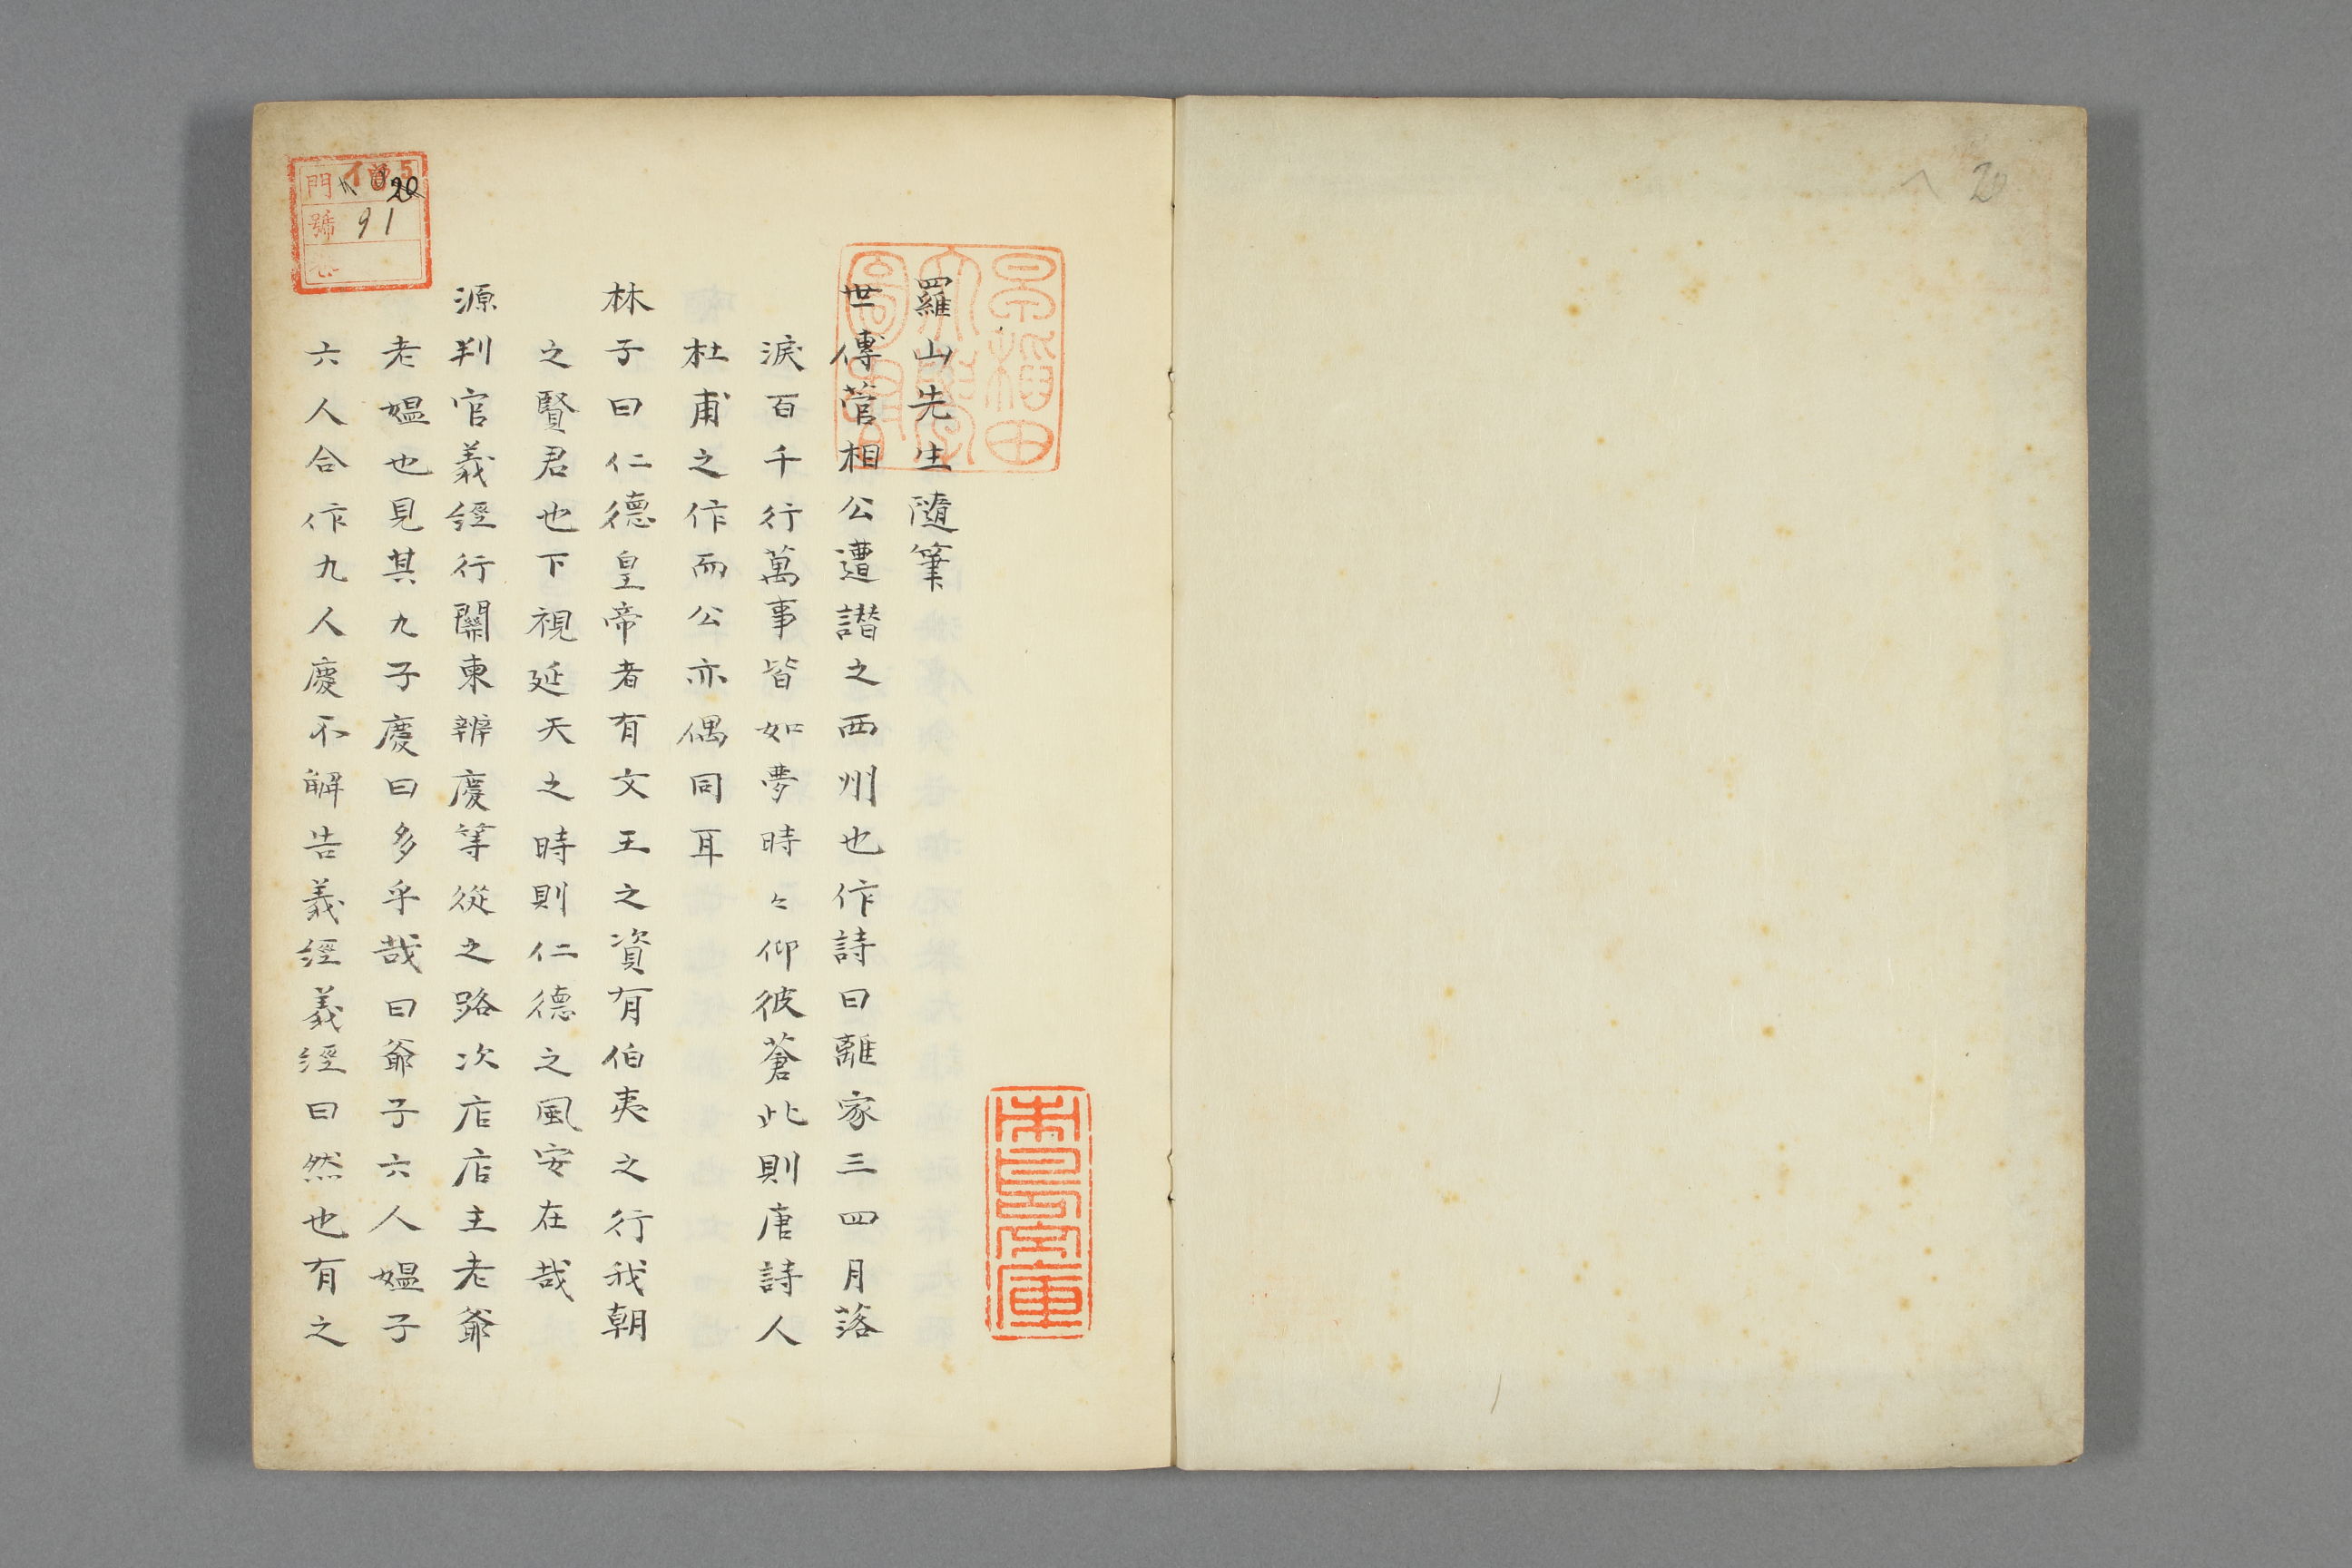 20
羅山先生隨筆
世傳菅相公遭譖之西州也作詩曰離家三四月落
淚百千行萬事皆如夢時〻仰彼蒼此則唐詩人
杜甫之作而公亦偶同耳
林子曰仁德皇帝者有文王之資有伯夷之行我朝
之賢君也下視延天之時則仁德之風安在哉
源判官義經行關東辨慶等從之路次店店主老爺
老媼也見其九子慶曰多乎哉曰爺子六人媼子
六人合作九人慶不解告義經義經曰然也有之
門 イ 5
20
號 91